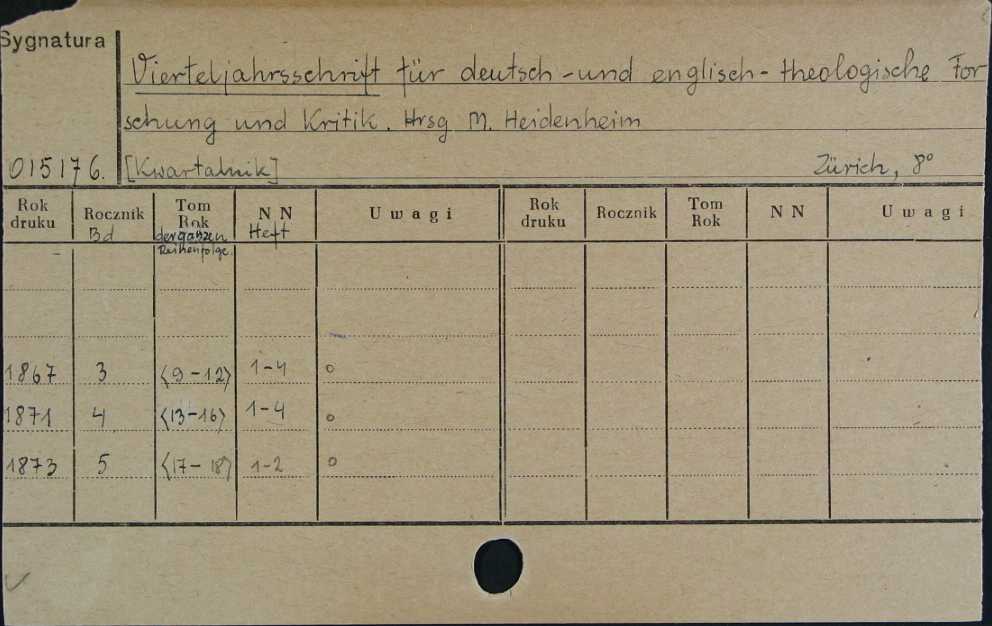 Sygnatura
Vierteljahrsschrift für deutsch - und englisch - theologische For
schung und Kritik. Hrsg M. Heidenheim
015176. [Kwartalnik] Zürich, 8°
Rok druku Rocznik Tom Rok NN Uwagi Rok druku Rocznik Tom Rok NN Uwagi
Bd der ganzen Reihenfolge. Heft
1867 3 <9-12> 1-4 o
1871 4 <13-16> 1-4 o
1873 5 <17-18> 1-2 o